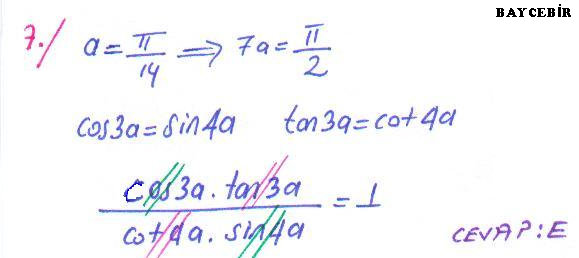 BAYCEBİR
7./ a = π/14 ⟹ 7a = π/2
cos3a = sin4a tan3a = cot4a
cos3a . tan3a / cot4a . sin4a = 1
CEVAP : E